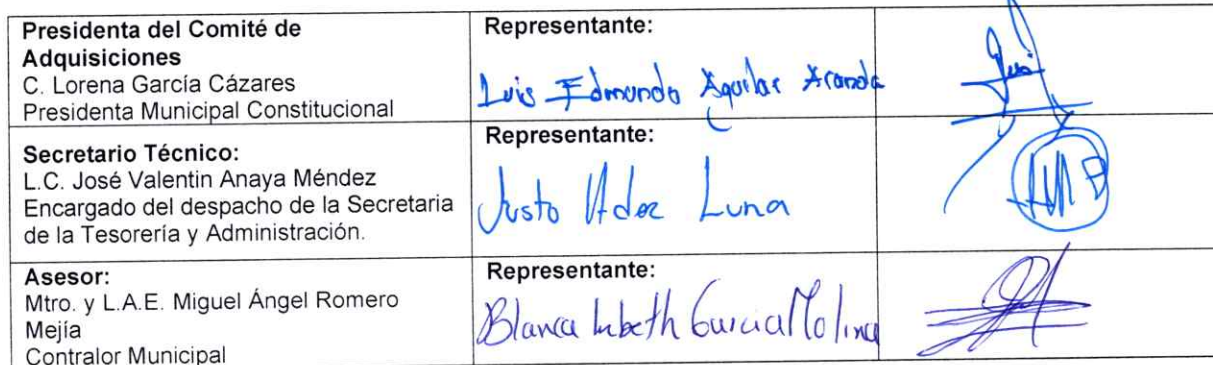 Presidenta del Comité de
Adquisiciones
C. Lorena García Cázares
Presidenta Municipal Constitucional
Representante:
Luis Edmundo Aguilar Aranda
Secretario Técnico:
L.C. José Valentin Anaya Méndez
Encargado del despacho de la Secretaria
de la Tesorería y Administración.
Representante:
Justo Luna
Asesor:
Mtro. y L.A.E. Miguel Ángel Romero
Mejía
Contralor Municipal
Representante:
Blanca Garcia Molina